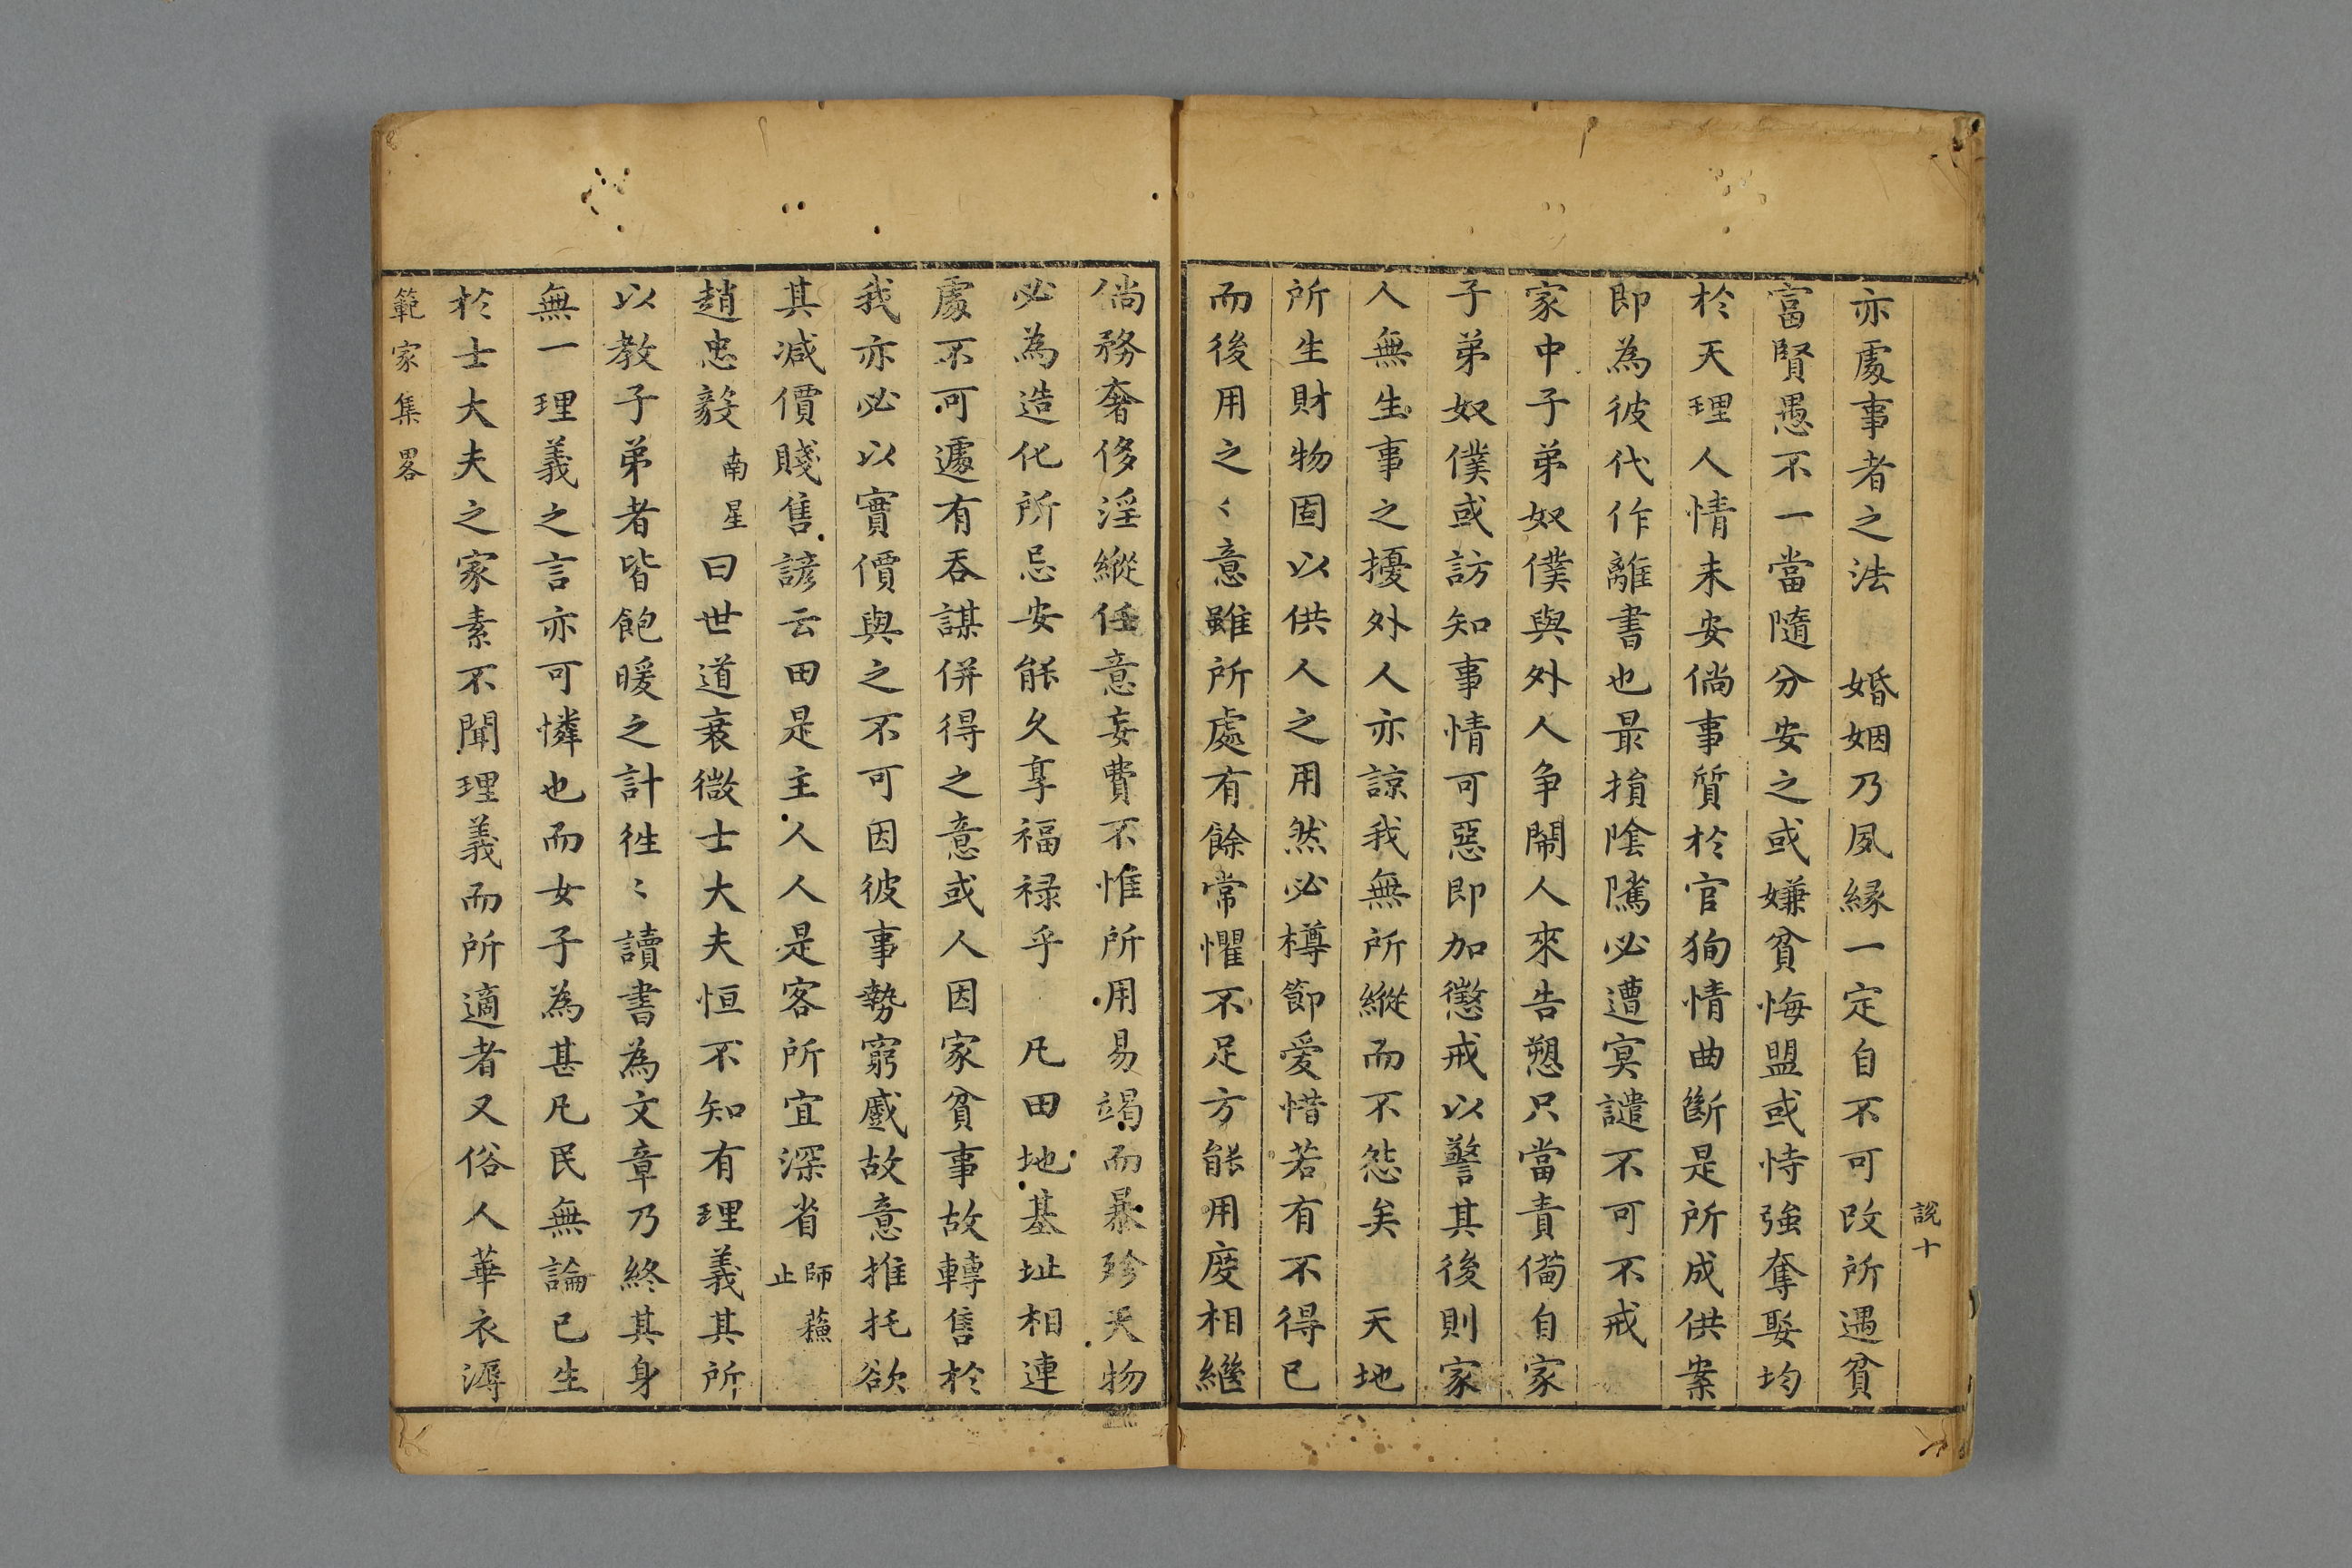 説十
亦處事者之法　婚姻乃夙緣一定自不可改所遇貧
富賢愚不一當隨分安之或嫌貧悔盟或恃強奪娶均
於天理人情未安倘事質於官狥情曲斷是所成供案
即為彼代作離書也最損陰隲必遭冥譴不可不戒
家中子弟奴僕與外人争鬧人來告愬只當責備自家
子弟奴僕或訪知事情可惡即加懲戒以警其後則家
人無生事之擾外人亦諒我無所縱而不怨矣　天地
所生財物固以供人之用然必樽節爱惜若有不得已
而後用之〻意雖所處有餘常懼不足方能用度相繼
倘務奢侈淫縱任意妄費不惟所用易竭而暴殄天物
必為造化所忌安能久享福禄乎　凡田地基址相連
處不可遽有吞謀併得之意或人因家貧事故轉售於
我亦必以實價與之不可因彼事勢窮蹙故意推托欲
其减價賤售諺云田是主人人是客所宜深省師蘓止
趙忠毅南星曰世道衰微士大夫恒不知有理義其所
以教子弟者皆飽暖之計徃〻讀書為文章乃終其身
無一理義之言亦可憐也而女子為甚凡民無論已生
於士大夫之家素不聞理義而所適者又俗人華衣溽
範家集畧